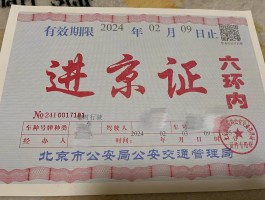 有效期限 2024 年 02 月 09 日止
进京证
六环内
№2410017181
车种号牌种类 驾驶人
经办人 2024 02
北京市公安局公安交通管理局